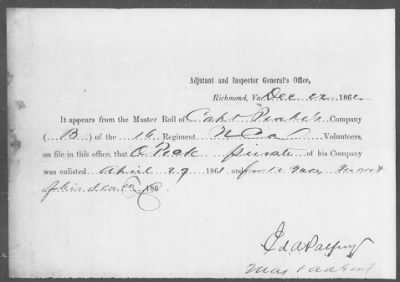 Adjutant and Inspector General's Office,
Richmond, Va. Dec 22 186
It appears from the Muster Roll of Capt Company
( B ) of the 16 Regiment N Ca Volunteers,
on file in this office, that O Peek private of his Company
was enlisted April 29 1861 and
186
Ed A Palfrey